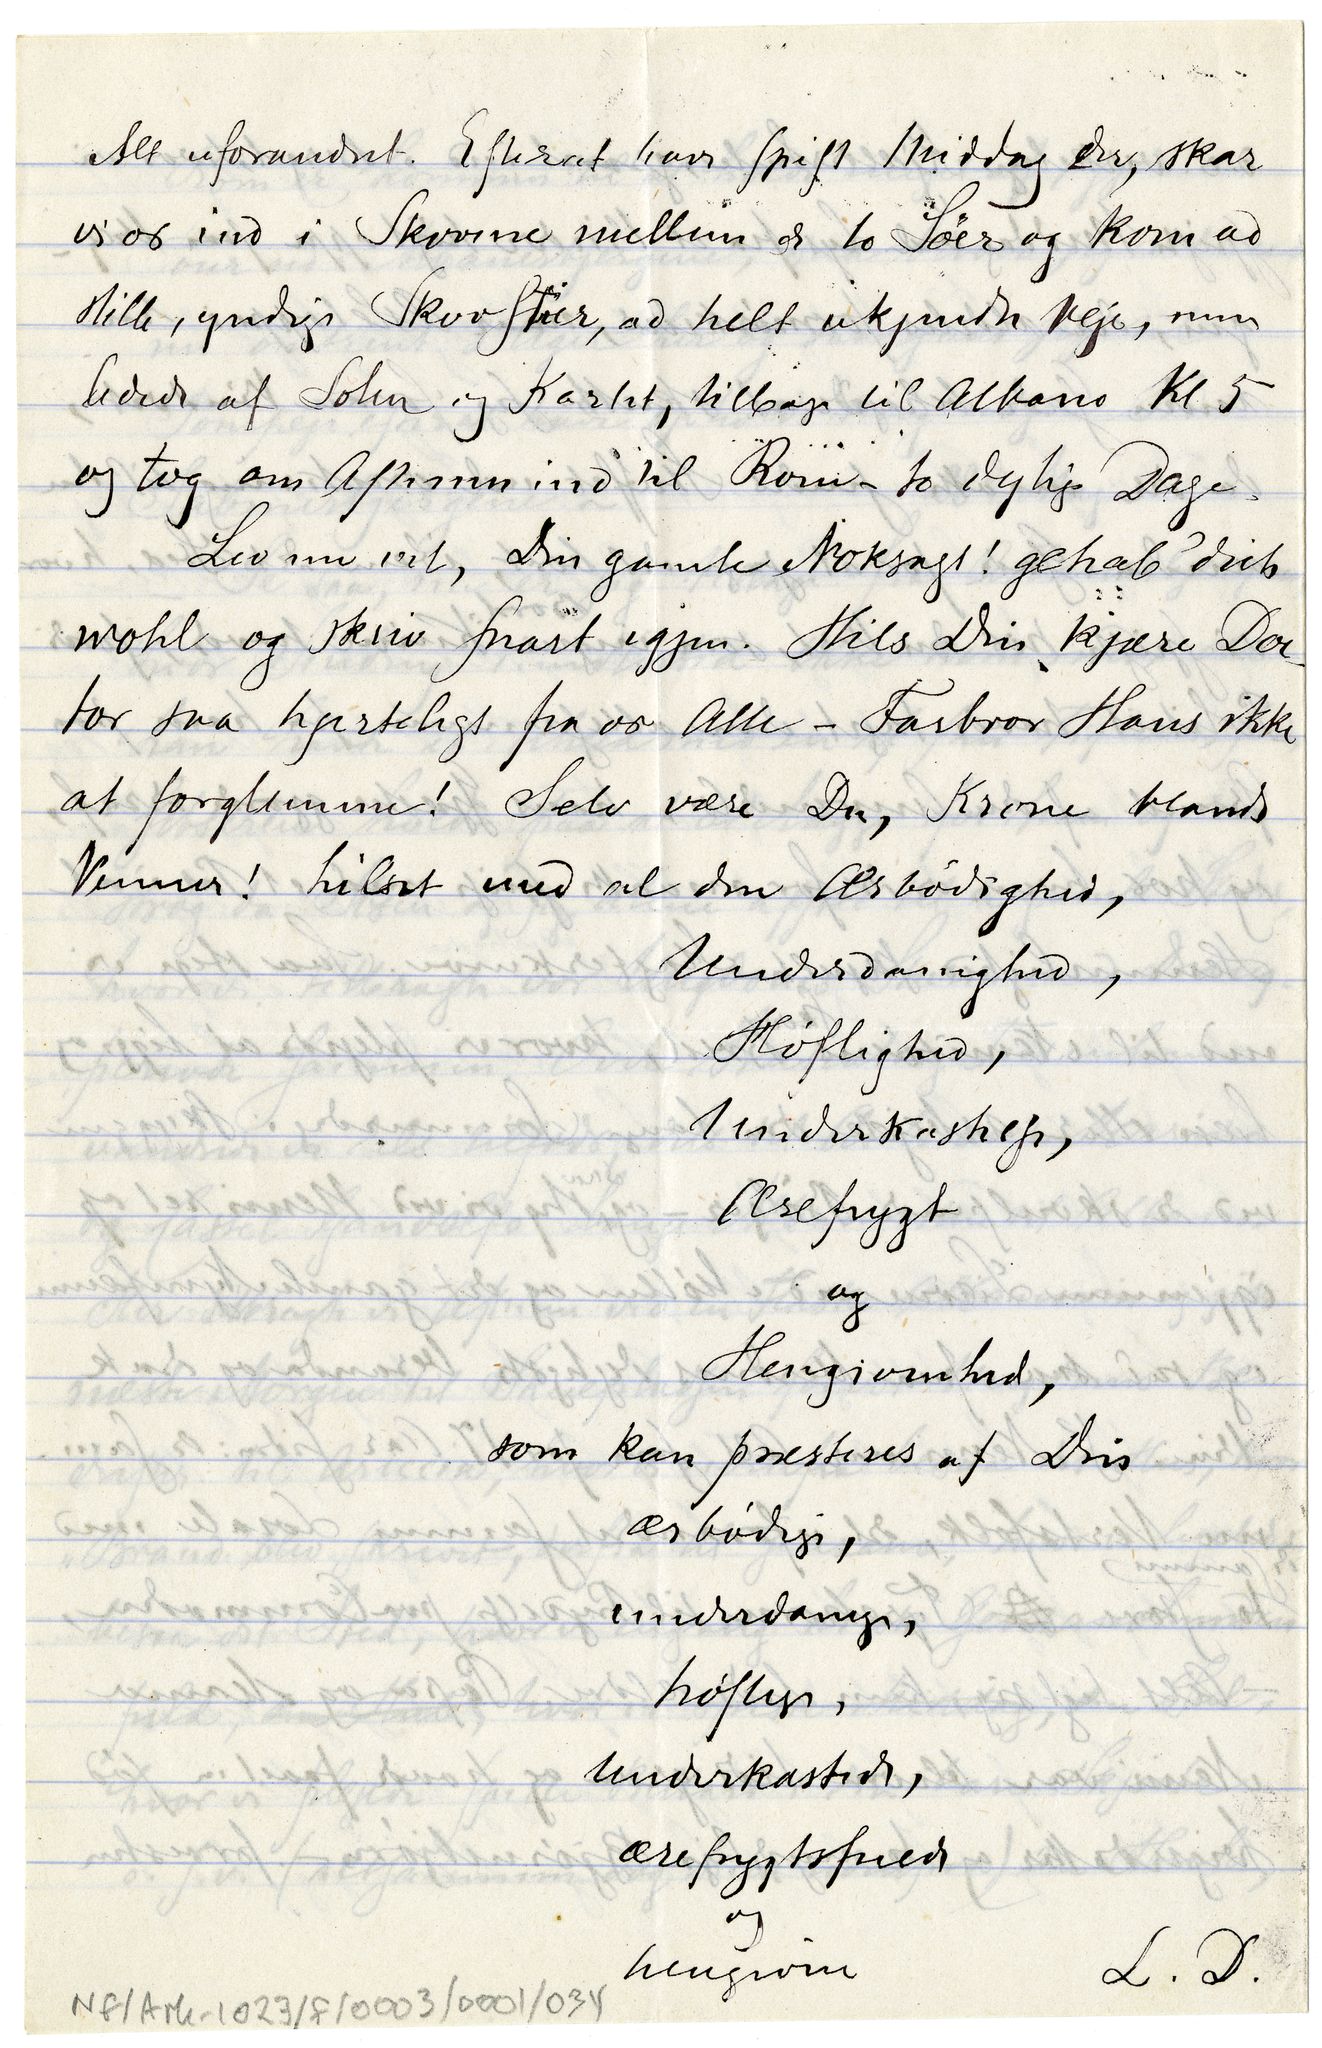 Alt uforandret. Efterat have spist Middag der, skar
vi os ind i Skovene mellem de to Söer og kom ad
stille, yndige Skovstier, ad helt ukjendte Veje, mm
ledede af Solen og Kartet, tilbage til Albano Kl 5
og tog om Aftenen ind til Rom – to dejlige Dage.
Lev nu vel, Din gamle Noksagt! gehab' dich
wohl og skriv snart igjen. Hils Din kjære Doc-
tor saa hjerteligt fra os Alle – Farbror Hans ikke
at forglemme! Selv være Du, Krone blandt
Venner! hilset med al den Ærbödighed,
Underdanighed,
Höflighed,
Underkastelse,
Ærefrygt
og
Hengivenhed,
som kan præsteres af Din
ærbödige,
underdanige,
höflige,
underkastede,
ærefrygtsfulde
og
hengivne L. D.
NF/Ark-1023/F/0003/0001/034